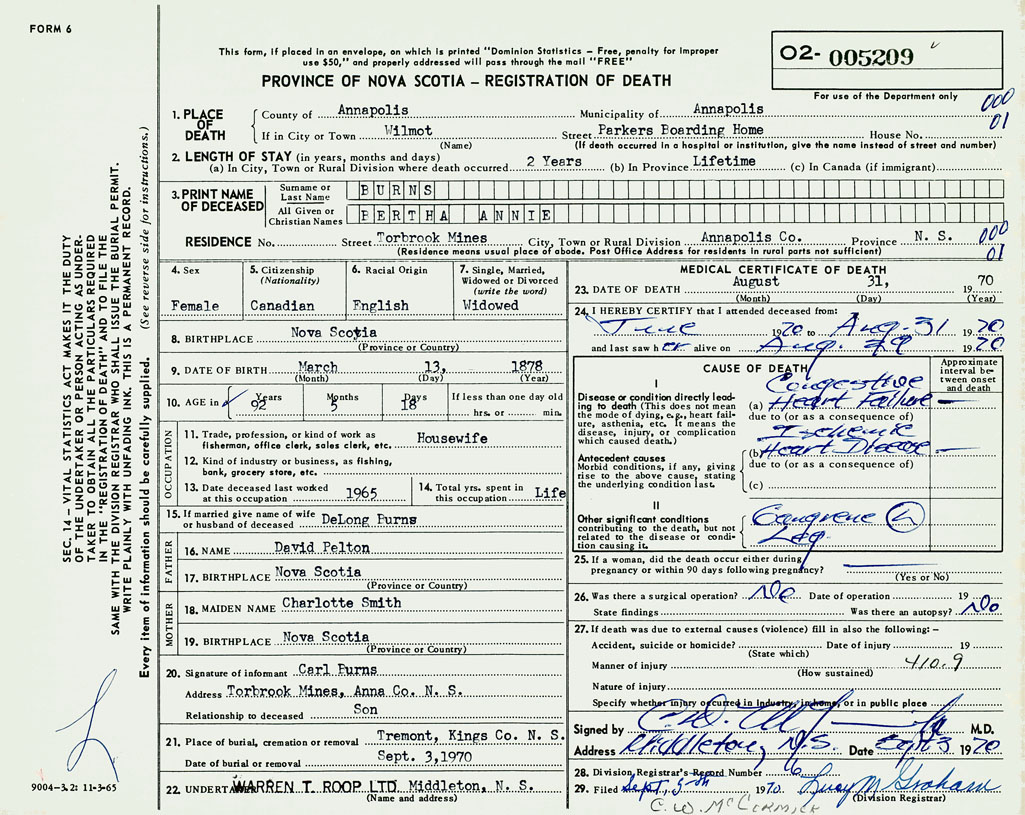 FORM 6
This form, if placed in an envelope, on which is printed "Dominion Statistics – Free, penalty for improper
use $50," and properly addressed will pass through the mail "FREE"
PROVINCE OF NOVA SCOTIA – REGISTRATION OF DEATH
O2- 005209
For use of the Department only
000
01
1. PLACE OF DEATH
County of Annapolis Municipality of Annapolis
If in City or Town Wilmot Street Parkers Boarding Home House No.
(Name) (If death occurred in a hospital or institution, give the name instead of street and number)
2. LENGTH OF STAY (in years, months and days)
(a) In City, Town or Rural Division where death occurred 2 Years (b) In Province Lifetime (c) In Canada (if immigrant)
3. PRINT NAME OF DECEASED
Surname or Last Name BURNS
All Given or Christian Names BERTHA ANNIE
RESIDENCE No. Street Torbrook Mines City, Town or Rural Division Annapolis Co. Province N. S.
(Residence means usual place of abode. Post Office Address for residents in rural parts not sufficient)
000
01
4. Sex
Female
5. Citizenship
(Nationality)
Canadian
6. Racial Origin
English
7. Single, Married,
Widowed or Divorced
(write the word)
Widowed
8. BIRTHPLACE Nova Scotia
(Province or Country)
9. DATE OF BIRTH March 13, 1878
(Month) (Day) (Year)
10. AGE in Years Months Days If less than one day old
92 5 18 hrs. or min.
OCCUPATION
11. Trade, profession, or kind of work as
fisherman, office clerk, sales clerk, etc. Housewife
12. Kind of industry or business, as fishing,
bank, grocery store, etc.
13. Date deceased last worked
at this occupation 1965
14. Total yrs. spent in
this occupation Life
15. If married give name of wife
or husband of deceased DeLong Purns
FATHER
16. NAME David Pelton
17. BIRTHPLACE Nova Scotia
(Province or Country)
MOTHER
18. MAIDEN NAME Charlotte Smith
19. BIRTHPLACE Nova Scotia
(Province or Country)
20. Signature of informant Carl Purns
Address Torbrook Mines, Anna Co. N. S.
Relationship to deceased Son
21. Place of burial, cremation or removal Tremont, Kings Co. N. S.
Date of burial or removal Sept. 3,1970
22. UNDERTAKER WARREN T. ROOP LTD. Middleton, N. S.
(Name and address)
MEDICAL CERTIFICATE OF DEATH
23. DATE OF DEATH August 31, 1970
(Month) (Day) (Year)
24. I HEREBY CERTIFY that I attended deceased from:
June 1970 to Aug. 31 1970
and last saw her alive on Aug. 29 1970
CAUSE OF DEATH
Approximate
interval be-
tween onset
and death
I
Disease or condition directly lead-
ing to death (This does not mean
the mode of dying, e.g., heart fail-
ure, asthenia, etc. It means the
disease, injury, or complication
which caused death.)
Congestive
(a) Heart Failure –
due to (or as a consequence of)
Ischemic
(b) Heart Disease –
due to (or as a consequence of)
Antecedent causes
Morbid conditions, if any, giving
rise to the above cause, stating
the underlying condition last.
(c)
II
Other significant conditions
contributing to the death, but not
related to the disease or condi-
tion causing it.
Gangrene L
Leg
25. If a woman, did the death occur either during
pregnancy or within 90 days following pregnancy?
(Yes or No)
26. Was there a surgical operation? No Date of operation 19
State findings Was there an autopsy? No
27. If death was due to external causes (violence) fill in also the following: –
Accident, suicide or homicide? Date of injury 19
(State which)
Manner of injury 410.9
(How sustained)
Nature of injury
Specify whether injury occurred in industry, in home, or in public place
Signed by M.D.
Address Middleton, N.S. Date Sept 3 1970
28. Division Registrar's Record Number 6
29. Filed Sept. 5th 1970. Lucy M Graham
(Division Registrar)
C. W. McCORMICK
SEC. 14 – VITAL STATISTICS ACT MAKES IT THE DUTY
OF THE UNDERTAKER OR PERSON ACTING AS UNDER-
TAKER TO OBTAIN ALL THE PARTICULARS REQUIRED
IN THE "REGISTRATION OF DEATH" AND TO FILE THE
SAME WITH THE DIVISION REGISTRAR WHO SHALL ISSUE THE BURIAL PERMIT.
WRITE PLAINLY WITH UNFADING INK. THIS IS A PERMANENT RECORD.
Every item of information should be carefully supplied. (See reverse side for instructions.)
9004-3.2: 11-3-65